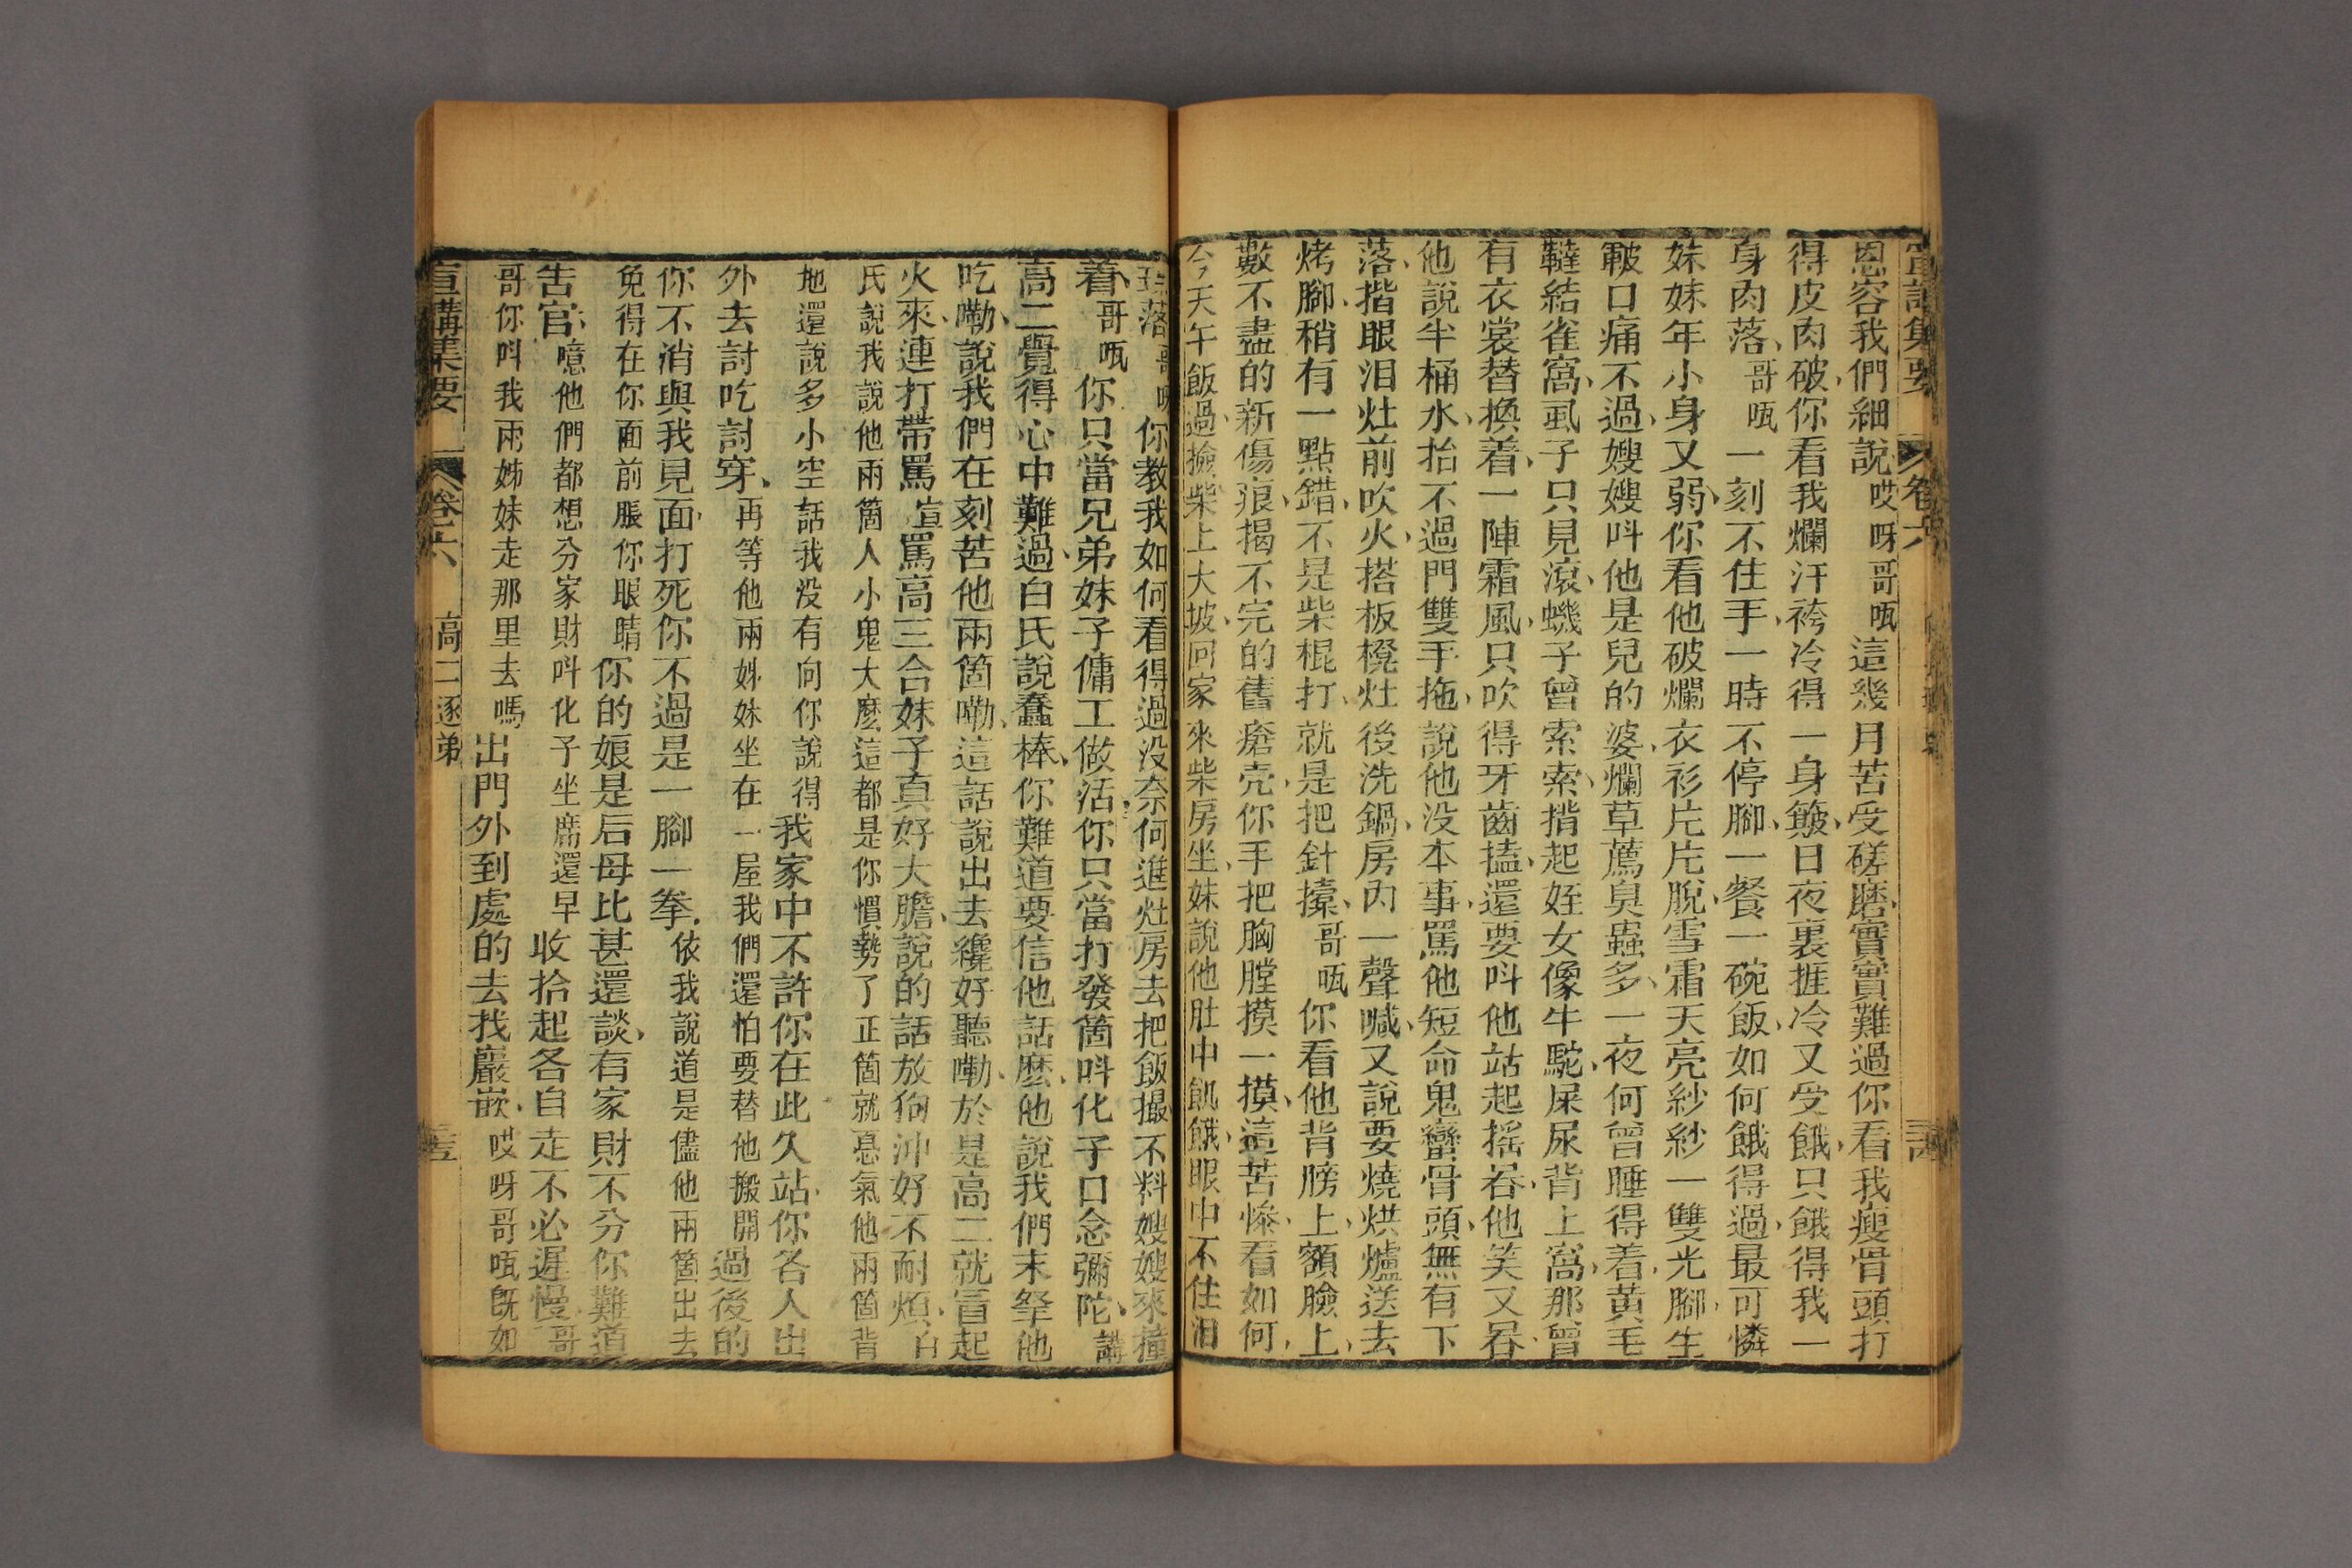 宣講集要 卷六
恩容我們細說哎呀哥㕶這幾月苦受磋磨實實難過你看我瘦骨頭打
得皮肉破你看我爛汗袴冷得一身簸日夜裏捱冷又受餓只餓得我一
身肉落哥㕶一刻不住手一時不停腳一餐一碗飯如何餓得過最可憐
妹妹年小身又弱你看他破爛衣衫片片脫雪霜天亮紗紗一雙光腳生
皸口痛不過嫂嫂呌他是兒的婆爛草薦臭蟲多一夜何曾睡得着黃毛
韃結雀窩虱子只見滾蟣子曾索索揹起姪女像牛駝屎尿背上窩那曾
有衣裳替換着一陣霜風只吹得牙齒搕還要呌他站起搖吞他笑又吞
他說半桶水抬不過門雙手拖說他没本事罵他短命鬼蠻骨頭無有下
落揩眼泪灶前吹火搭板櫈灶後洗鍋房内一聲喊又說要燒烘爐送去
烤腳稍有一點錯不是柴棍打就是把針㨯哥㕶你看他背膀上額臉上
數不盡的新傷痕揭不完的舊瘡壳你手把胸膛摸一摸這苦慘看如何
今天午飯過撿柴上大坡回家來柴房坐妹說他肚中飢餓眼中不住泪
珠落哥㕶你教我如何看得過没奈何進灶房去把飯撮不料嫂嫂來撞
着哥㕶你只當兄弟妹子傭工做活你只當打發箇呌化子口念彌陀講
高二覺得心中難過白氏說蠢棒你難道要信他話麽他說我們未拏他
吃嘞說我們在刻苦他兩箇嘞這話說出去纔好聽嘞於是高二就冒起
火來連打帶罵宣罵高三合妹子真好大膽說的話放狗沖好不耐煩白
氏說我說他兩箇人小鬼大麽這都是你慣勢了正箇就惪氣他兩箇背
地還說多小空話我没有向你說得我家中不許你在此久站你各人出
外去討吃討穿再等他兩姊妹坐在一屋我們還怕要替他搬開過後的
你不消與我見面打死你不過是一腳一拳依我說道是儘他兩箇出去
免得在你面前脹你眼睛你的娘是后母比甚還談有家財不分你難道
告官噫他們都想分家財呌化子坐席還早收拾起各自走不必遲慢哥
哥你呌我兩姊妹走那里去嗎出門外到處的去找巖嵌哎呀哥㕶旣如
宣講集要 卷六 高二逐弟